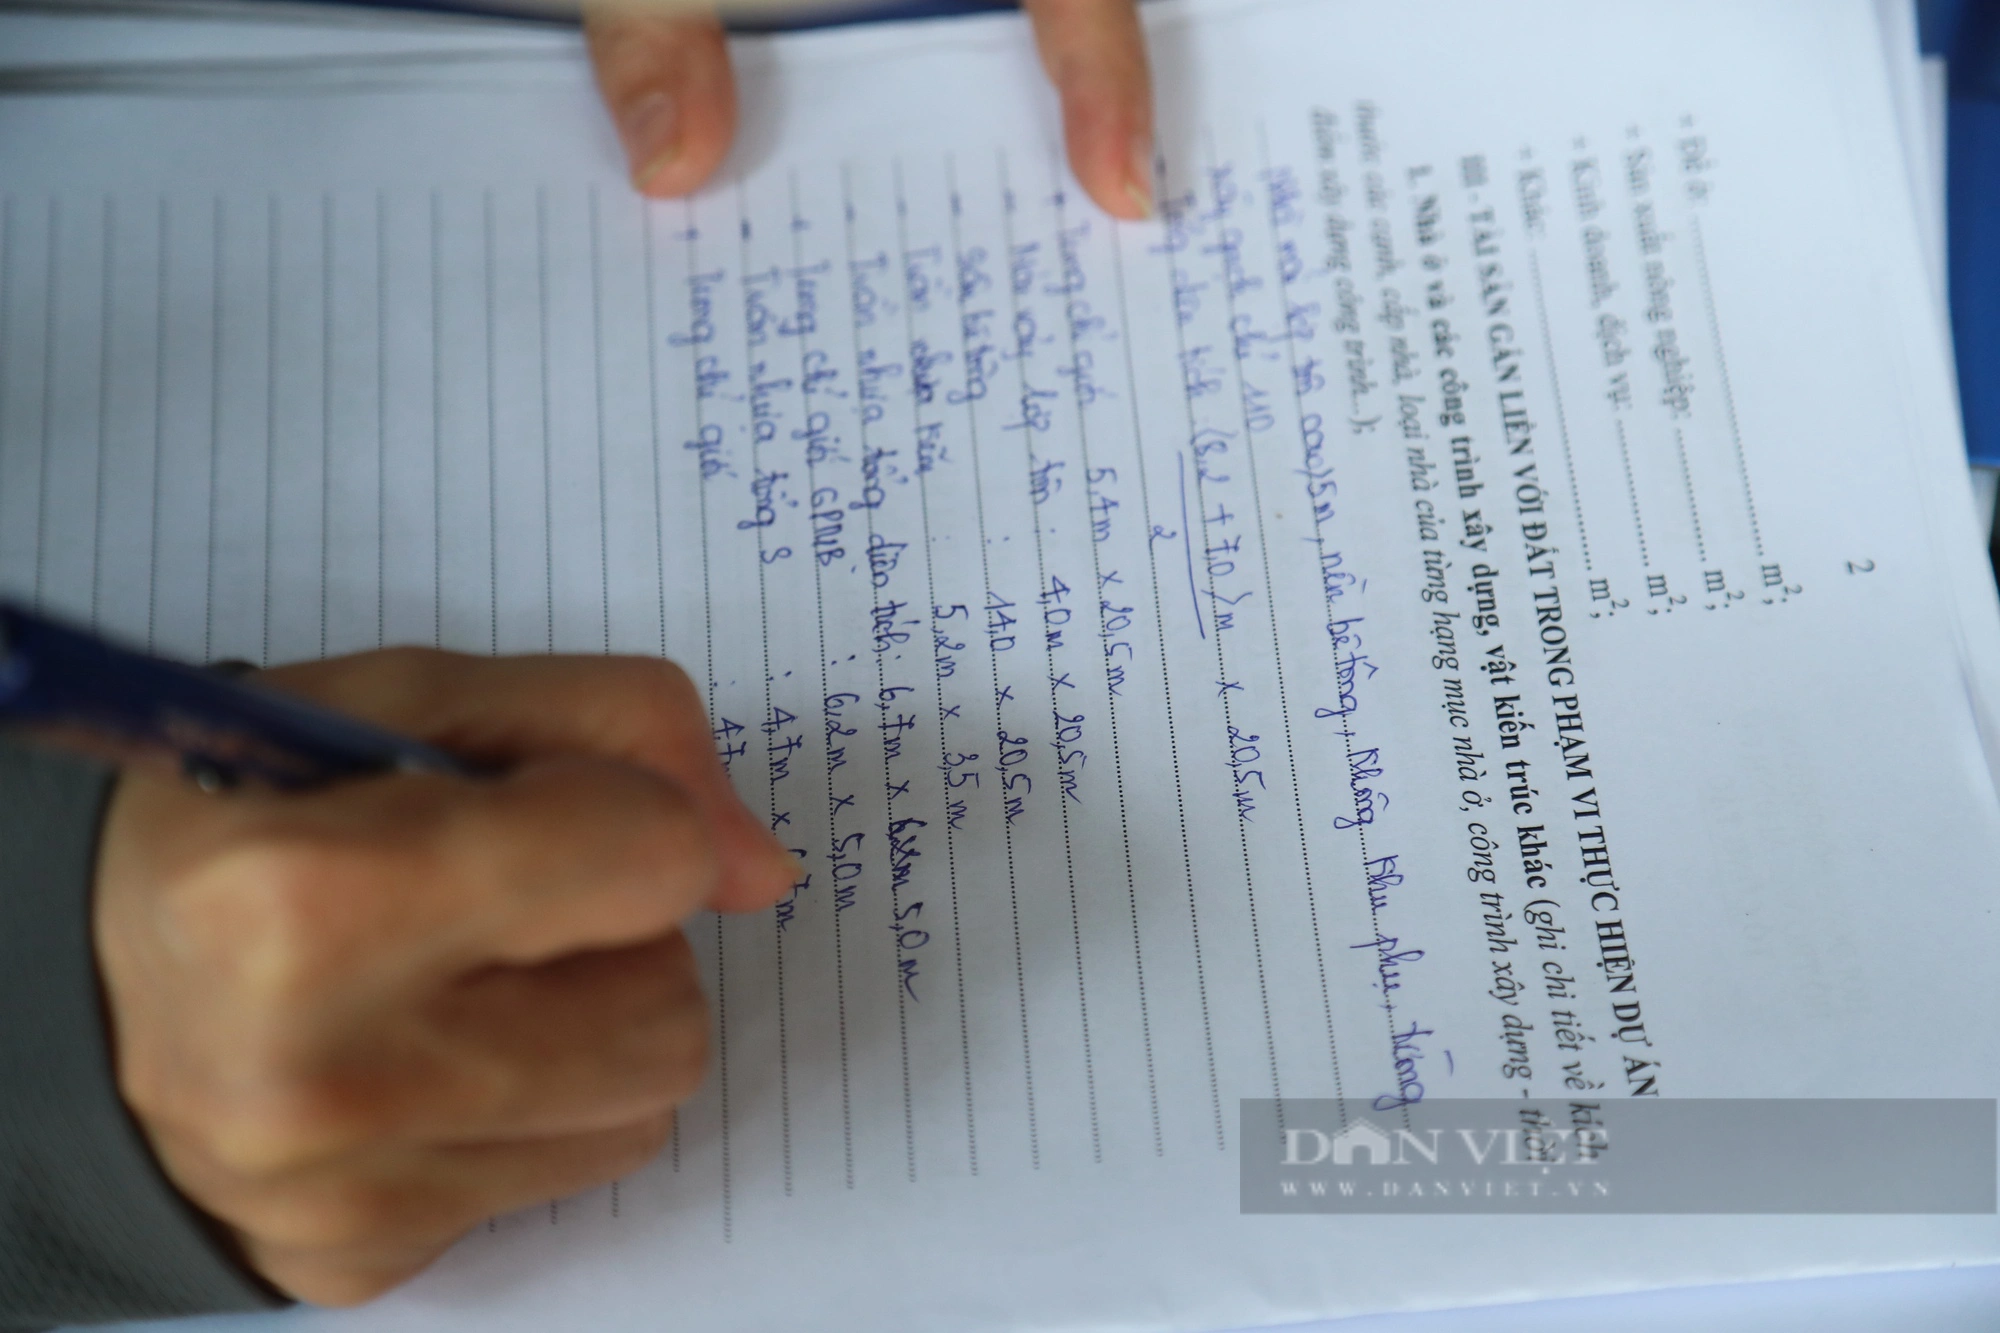 2
+ Để ở: ........ m²;
+ Sản xuất nông nghiệp: ........ m²;
+ Kinh doanh, dịch vụ: ........ m²;
+ Khác: ........ m²;
III - TÀI SẢN GẮN LIỀN VỚI ĐẤT TRONG PHẠM VI THỰC HIỆN DỰ ÁN
1. Nhà ở và các công trình xây dựng, vật kiến trúc khác (ghi chi tiết về kích
thước các cạnh, cấp nhà, loại nhà của từng hạng mục nhà ở, công trình xây dựng - thời
điểm xây dựng công trình...);
tôn cao 5m, nền bê tông, không khu phụ, tường
xây gạch chỉ 110
Tổng diện tích (8,2 + 7,0)m x 20,5m
2
+ Trong chỉ giới 5,4m x 20,5m
- Mái lợp tôn : 4,0m x 20,5m
- Sân bê tông : 14,0 x 20,5m
- : 5,2m x 3,5m
- nhựa tổng diện tích: 6,7m x 5,0m
+ Trong chỉ giới GPMB : 6,2m x 5,0m
- nhựa tổng S : 4,7m x 7m
+ Trong chỉ giới : 4,7m
DÂN VIỆT
WWW.DANVIET.VN